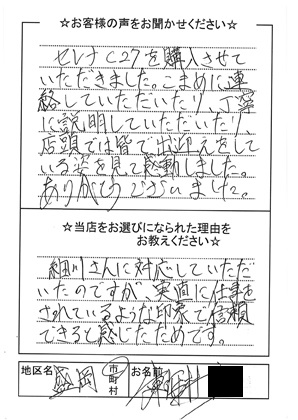 ☆お客様の声をお聞かせください☆
セレナC27を購入させて
いただきました。こまめに連
絡していただいたり、丁寧
に説明していただいたり、
店頭では皆で出迎えをして
いる姿を見て感動しました。
ありがとうございました。
☆当店をお選びになられた理由を
お教えください☆
細川さんに対応していただ
いたのですが、実直に仕事を
されているような印象で信頼
できると感じたためです。
地区名 盛岡 市町村 お名前